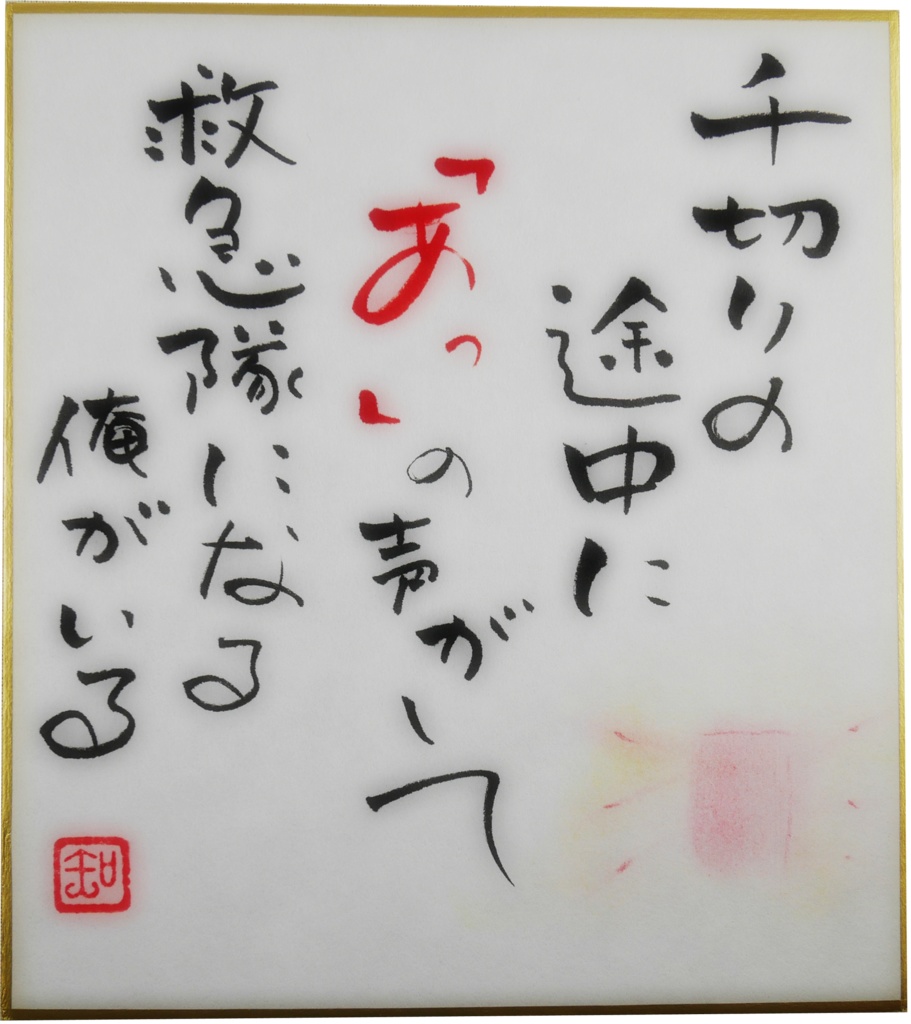 千切りの
途中に
「あっ」の声がして
救急隊になる
俺がいる
知